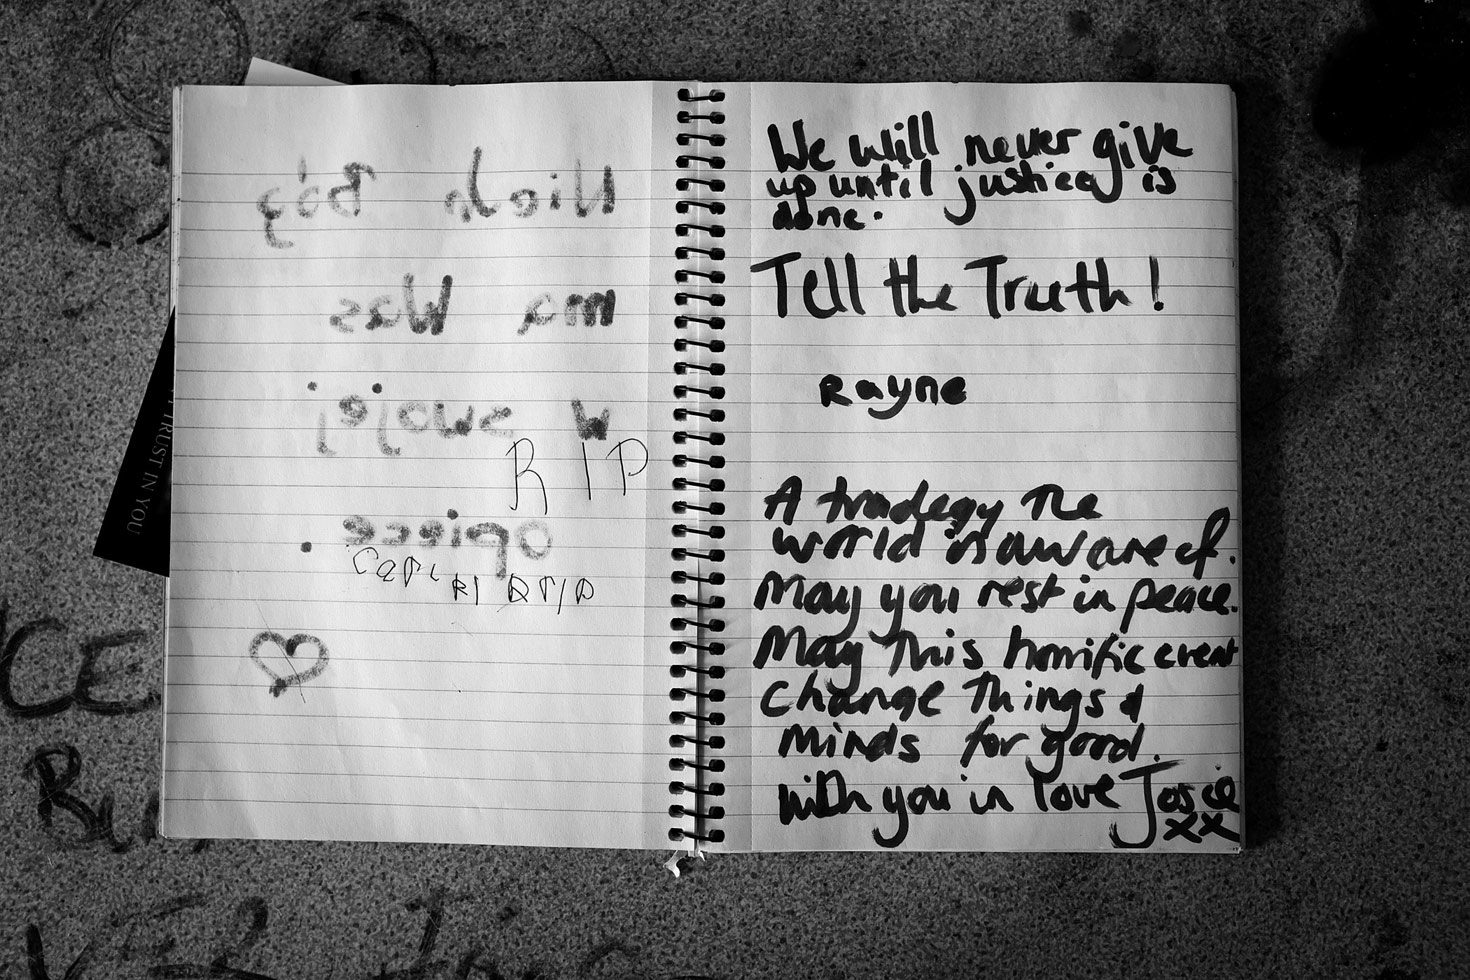 Niech Bóg
ma Was
w swojej
RIP
opiece.
TRUST IN YOU
CE
We will never give
up until justice is
done.
Tell the Truth!
Rayne
A tradegy The
world is aware of.
May you rest in peace.
May This horrific event
Change Things &
Minds for good.
with you in love Josie
xx